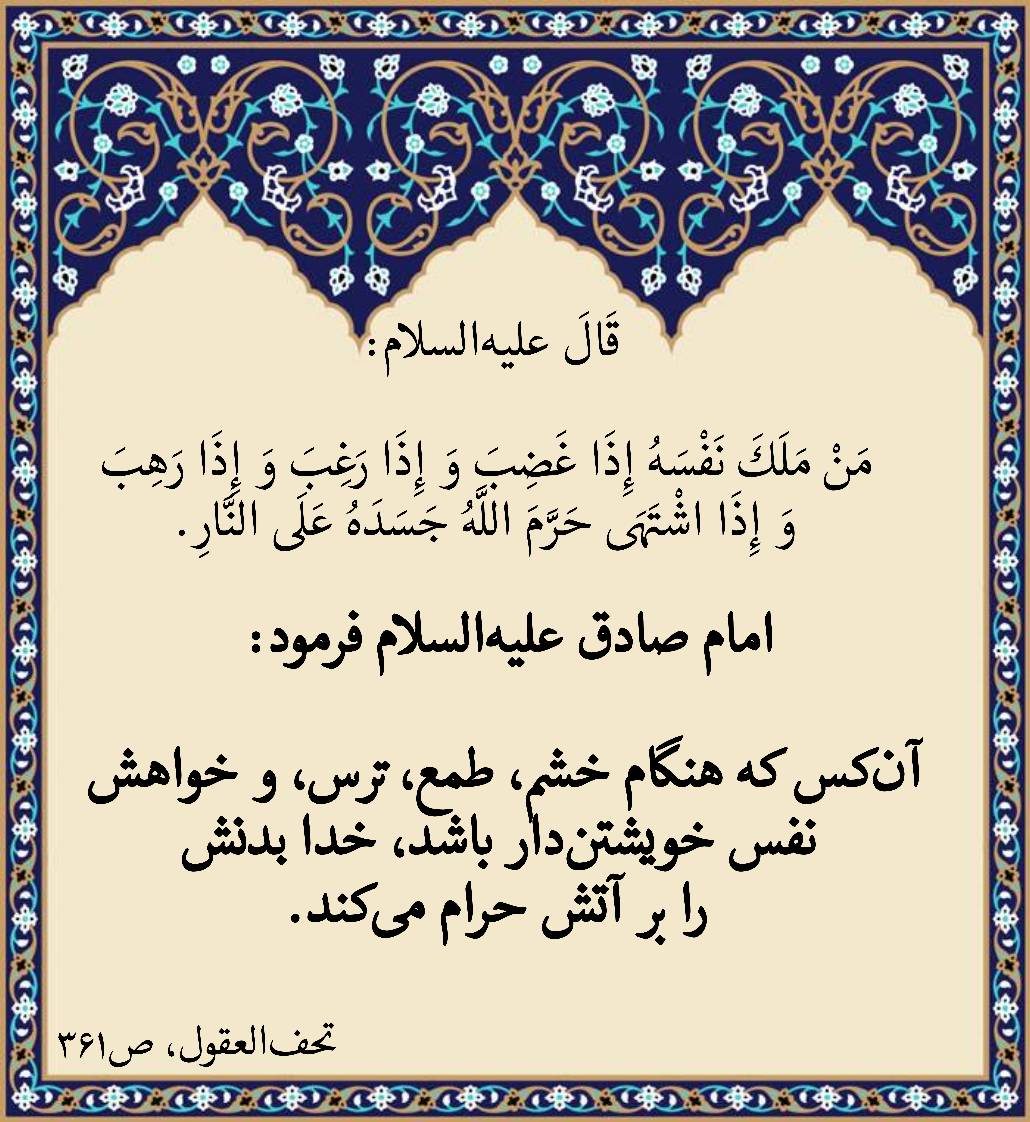 قَالَ علیه‌السلام:
مَنْ مَلَكَ نَفْسَهُ إِذَا غَضِبَ وَ إِذَا رَغِبَ وَ إِذَا رَهِبَ
وَ إِذَا اشْتَهَى حَرَّمَ اللَّهُ جَسَدَهُ عَلَى النَّارِ.
امام صادق علیه‌السلام فرمود:
آن‌کس که هنگام خشم، طمع، ترس، و خواهش
نفس خویشتن‌دار باشد، خدا بدنش
را بر آتش حرام می‌کند.
تحف‌العقول، ص۳۶۱